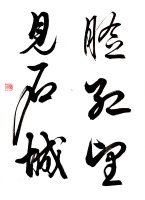 臉紅望
見石城